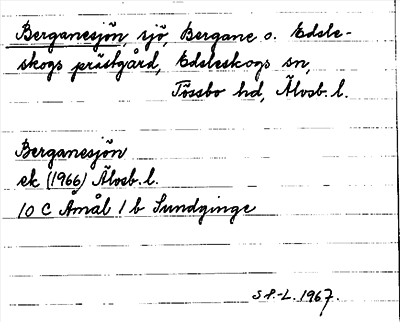 Berganesjön sjö, Bergane o. Edsle-
skogs prästgård, Edsleskogs sn,
Tössbo hd, Älvsb. l.
Berganesjön
ek (1966) Älvsb. l.
10 C Åmål 1 b Sundginge
S P.-L. 1967.